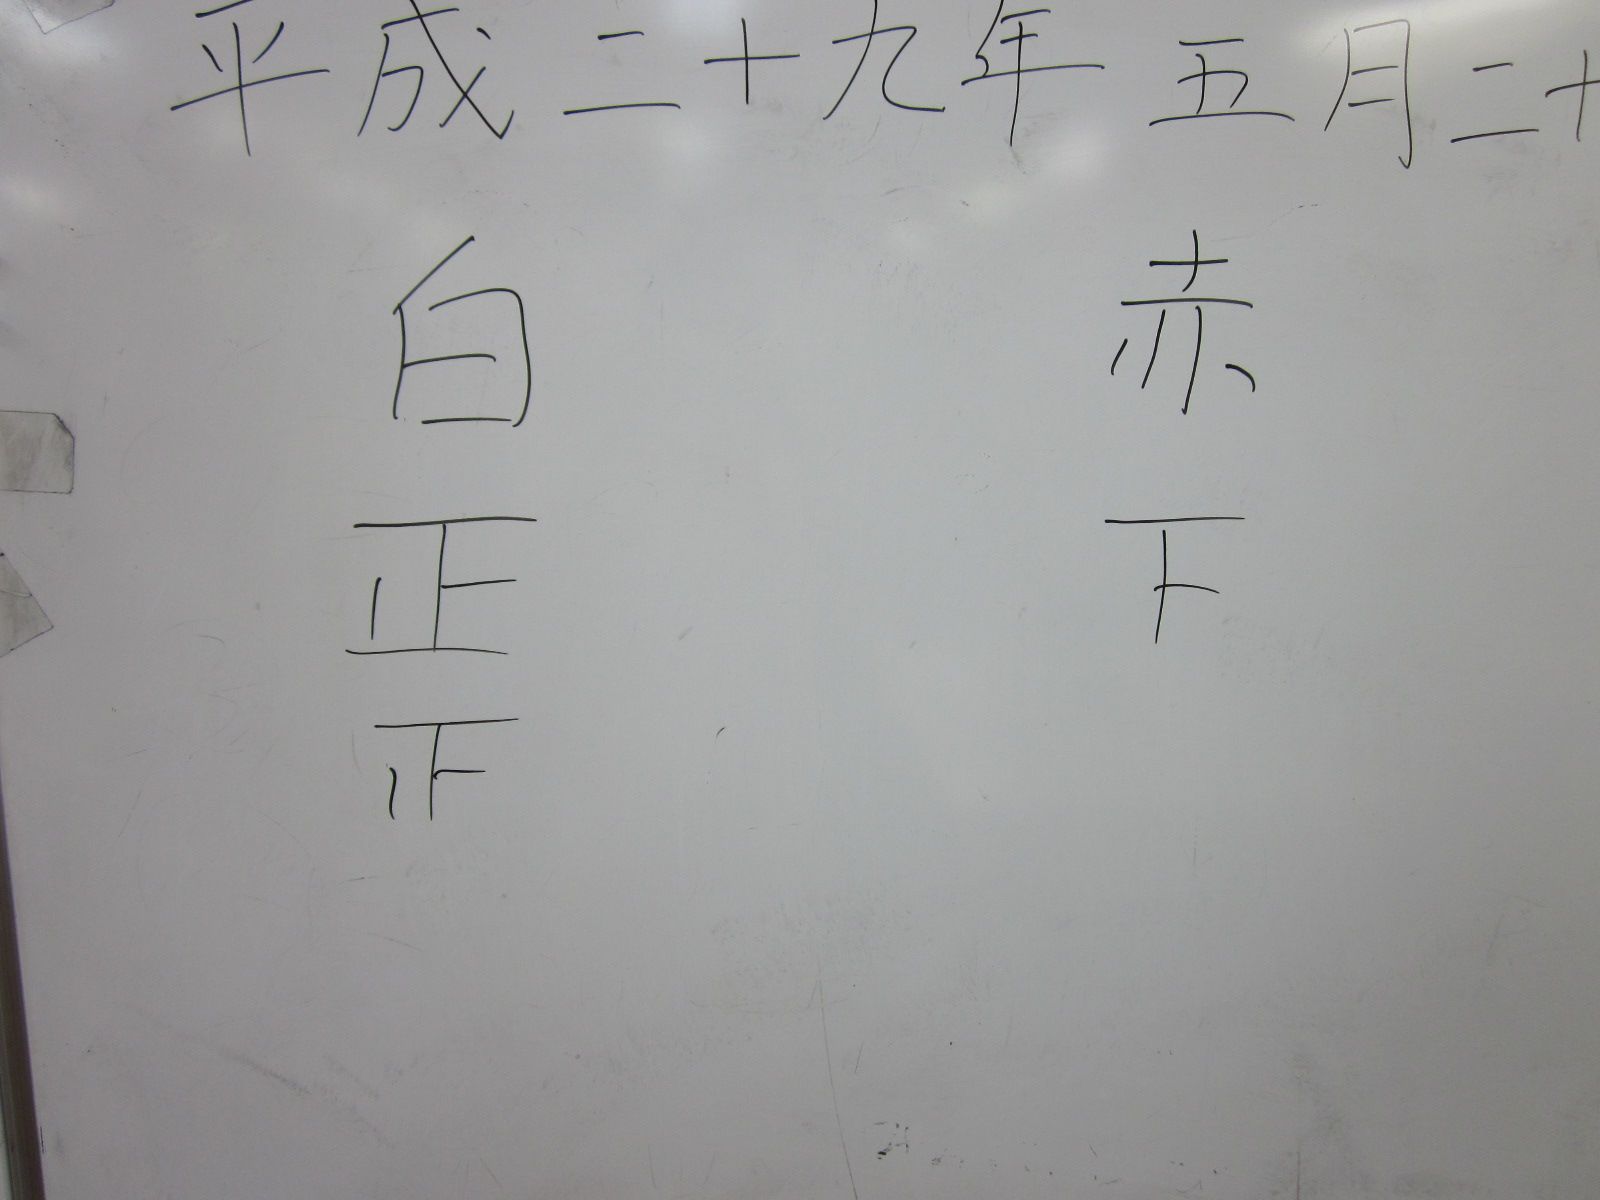 平成二十九年五月二十
白 赤
正 下
正